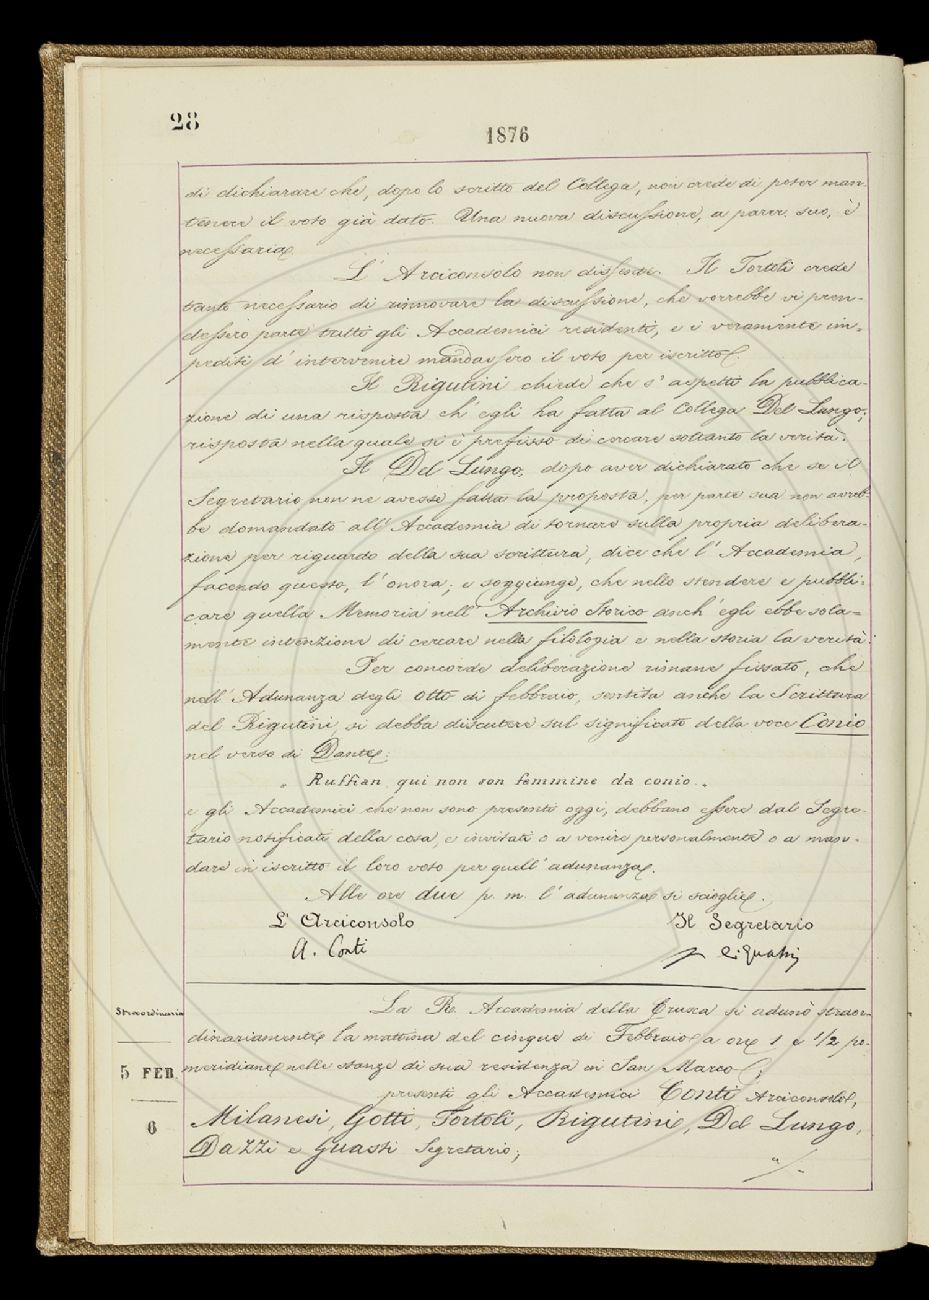 28
1876
di dichiarare che, dopo lo scritto del Collega, non crede di poter man-
tenere il voto già dato. Una nuova discussione, a parer suo, è
necessaria.
L'Arciconsolo non dissente. Il Tortoli crede
tanto necessario di rinnovare la discussione, che vorrebbe vi pren-
dessero parte tutti gli Accademici residenti, e i veramente im-
pediti d'intervenire mandassero il voto per iscritto.
Il Rigutini chiede che s'aspetti la pubblica-
zione di una risposta ch'egli ha fatta al Collega Del Lungo;
risposta nella quale si è prefisso di cercare soltanto la verità.
Il Del Lungo, dopo aver dichiarato che se il
Segretario non ne avesse fatta la proposta, per parte sua non avreb-
be domandato all'Accademia di tornare sulla propria delibera-
zione per riguardo della sua scrittura, dice che l'Accademia,
facendo questo, l'onora; e soggiunge, che nello stendere e pubbli-
care quella Memoria nell'Archivio Storico anch'egli ebbe sola-
mente intenzione di cercare nella filologia e nella storia la verità.
Per concorde deliberazione rimane fissato, che
nell'Adunanza degli otto di febbraio, sentita anche la Scrittura
del Rigutini, si debba discutere sul significato della voce Conio
nel verso di Dante:
" Ruffian qui non son femmine da conio. "
e gli Accademici che non sono presenti oggi, debbano essere dal Segre-
tario notificati della cosa, e invitati o a venire personalmente o a man-
dare in iscritto il loro voto per quell'adunanza.
Alle ore due p. m. l'adunanza si scioglie.
L'Arciconsolo
Il Segretario
A. Conti
C. Guasti
Straordinaria
La R. Accademia della Crusca si adunò straor-
dinariamente la mattina del cinque di Febbraio a ore 1 e 1/2 po-
5 FEB.
meridiane nelle stanze di sua residenza in San Marco;
presenti gli Accademici Conti Arciconsolo,
6
Milanesi, Gotti, Tortoli, Rigutini, Del Lungo,
Dazzi e Guasti Segretario;
"/.